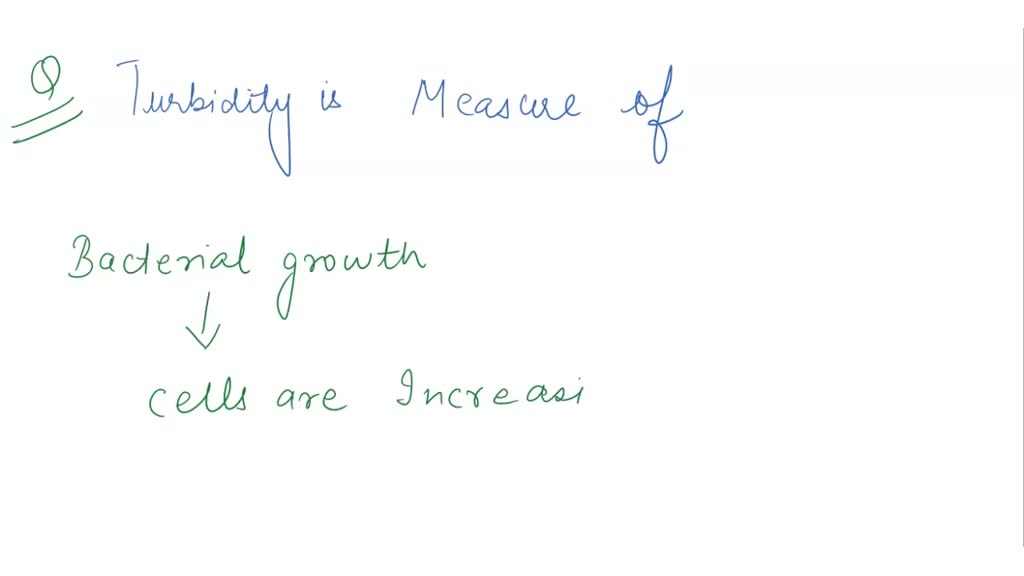 Q Turbidity is Measure of
Bacterial growth
cells are Increasi